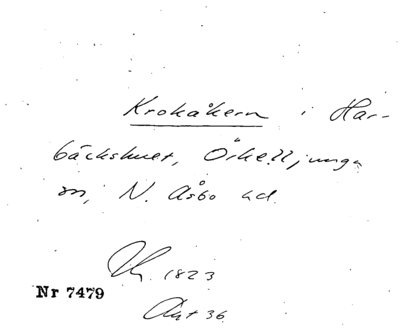 Krokåkern i Har-
bäckshult, Örkelljunga
sn, N. Åsbo hd.
1823
Nr 7479
Akt 36